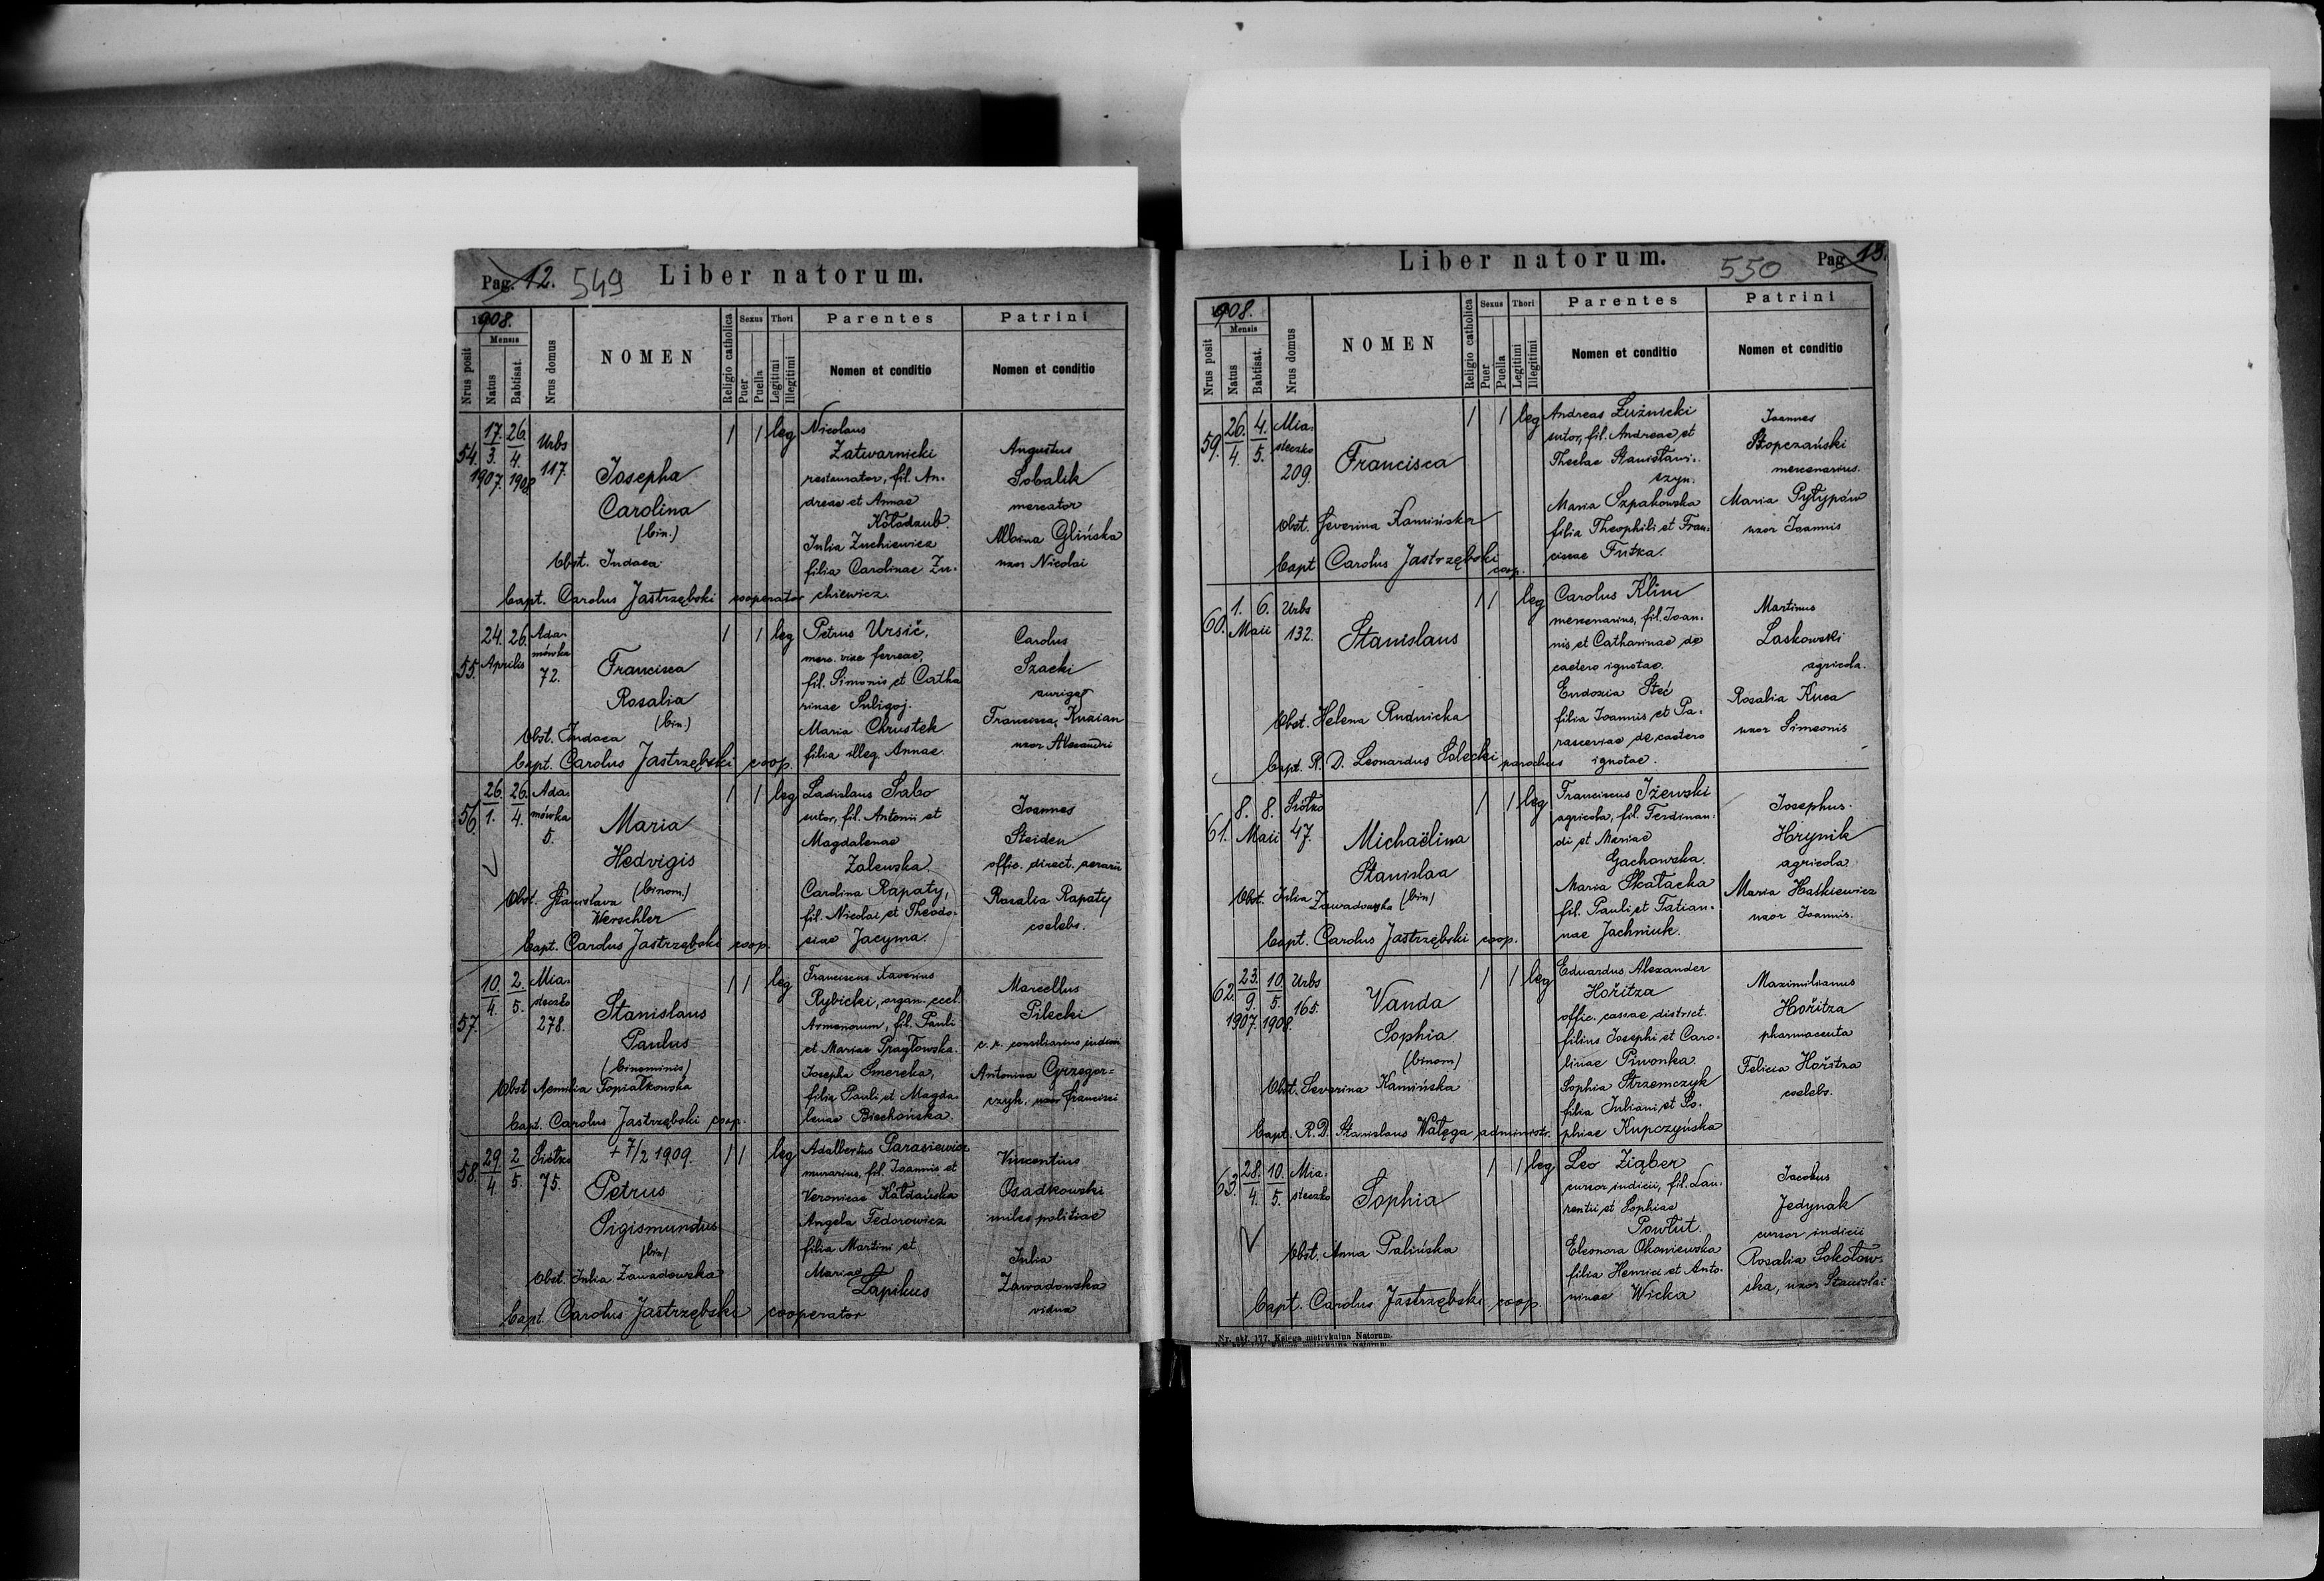 Pag. 12. 549 Liber natorum.
1908.
Mensis
Nrus posit
Natus
Babtisat.
Nrus domus
NOMEN
Religio catholica
Sexus
Puer
Puella
Thori
Legitimi
Illegitimi
Parentes
Nomen et conditio
Patrini
Nomen et conditio
54. 17. 3. 1907. 26. 4. 1908 Urbs 117.
Josepha
Carolina
(bin.)
Obst. Judaea
Bapt. Carolus Jastrzębski cooperator
1 1 leg
Nicolaus
Zatwarnicki
restaurator, fil. An-
dreae et Annae
Kołodzub.
Julia Zuchiewicz
filia Carolinae Zu-
chiewicz.
Augustus
Sobalik
mercator
Albina Glińska
uxor Nicolai
55. 24. 26. Aprilis Ada-
mówka
72.
Francisca
Rosalia
(bin.)
Obst. Judaea
Bapt. Carolus Jastrzębski coop.
1 1 leg
Petrus Ursič,
merc. viae ferreae,
fil. Simonis et Catha
rinae Suligoj.
Maria Chrustek
filia illeg. Annae.
Carolus
Szacki
auriga
Francisca
uxor Alexandri
56. 26. 1. 26. 4. Ada-
mówka
5.
Maria
Hedvigis
(binom.)
Obst. Stanislava
Werschler
Bapt. Carolus Jastrzębski coop.
1 1 leg
Ladislaus Sabo
sutor, fil. Antonii et
Magdalenae
Zalewska.
Carolina Rapaty,
fil. Nicolai et Theodo-
siae Jacyma.
Joannes
Steiden
offic. direct. aerarii
Rosalia Rapaty
coelebs.
57. 10. 4. 2. 5. Mia-
steczko
278.
Stanislaus
Paulus
(binominis)
Obst. Aemilia Topialkowska
Bapt. Carolus Jastrzębski coop.
1 1 leg
Franciscus Xaverius
Rybicki, organ. eccl.
Armenorum, fil. Pauli
et Mariae Pragłowska.
Josepha Smereka,
filia Pauli et Magda-
lenae Biechońska.
Marcellus
Pilecki
c. r. consiliarius judicii
Antonina Grzegor=
czyk, uxor Francisci
58. 29. 4. 2 5. Siółko
75.
+ 7/2 1909.
Petrus
Sigismundus
(bin)
Obst. Julia Zawadowska
Bapt. Carolus Jastrzębski cooperator
1 1 leg
Adalbertus Parasiewicz
murarius, fil. Joannis et
Veronicae Kaldańska
Angela Fedorowicz
filia Martini et
Mariae
Lapikus
Vincentius
Osadkowski
miles politiae
Julia
Zawadowska
vidua
Liber natorum. 550 Pag 13.
1908.
Mensis
Nrus posit
Natus
Babtisat.
Nrus domus
NOMEN
Religio catholica
Sexus
Puer
Puella
Thori
Legitimi
Illegitimi
Parentes
Nomen et conditio
Patrini
Nomen et conditio
59. 26. 4. 4. 5. Mia-
steczko
209.
Francisca
Obst. Severina Kamińska
Bapt Carolus Jastrzębski coop.
1 1 leg
Andreas Łużnicki
sutor, fil. Andreae et
Theclae Stanisławi-
szyn.
Maria Szpakowska
filia Theophili et Fran-
ciscae Futka.
Joannes
Stopczański
mercenarius.
Maria Pyłypów
uxor Joannis
60. 1. 6. Maii Urbs
132.
Stanislaus
Obst. Helena Rudnicka
Bapt. R. D. Leonardus Solecki parochus
1 1 leg
Carolus Klim
mercenarius, fil. Joan-
nis et Catharinae de
caetero ignotae.
Eudoxia Steć
filia Joannis et Pa-
rasceviae de caetero
ignotae.
Martinus
Laskowski
agricola.
Rosalia Kuca
uxor Simeonis
61. 8. 8. Maii Siółko
47.
Michaëlina
Stanislaa
(bin)
Obst. Julia Zawadowska
Bapt. Carolus Jastrzębski coop.
1 1 leg
Franciscus Iżewski
agricola, fil. Ferdinan-
di et Mariae
Gachowska.
Maria Skałacka
fil. Pauli et Tatian-
nae Jachniuk.
Josephus
Hrynik
agricola
Maria Haśkiewicz
uxor Joannis.
62. 23. 9. 1907. 10. 5. 1908. Urbs
165.
Vanda
Sophia
(binom)
Obst. Severina Kamińska
Bapt. R. D. Stanislaus Wałęga administr.
1 1 leg
Eduardus Alexander
Hořitza
offic. cassae district.
filius Josephi et Caro-
linae Piwonka.
Sophia Strzemczyk
filia Juliani et So-
phiae Kupczyńska
Maximilianus
Hořitza
pharmaceuta
Felicia Hořitza
coelebs.
63. 28. 4. 10. 5. Mia-
steczko
Sophia
Obst. Anna Palińska
Bapt. Carolus Jastrzębski coop.
1 1 leg
Leo Ziąber
cursor judicii, fil. Lau-
rentii et Sophiae
Pawlut.
Eleonora Okoniewska
filia Henrici et Anto-
ninae Wicka
Jacobus
Jedynak
cursor judicii
Rosalia Sokołow-
ska, uxor Stanislai
Nr. akt. 177. Księga metrykalna Natorum.